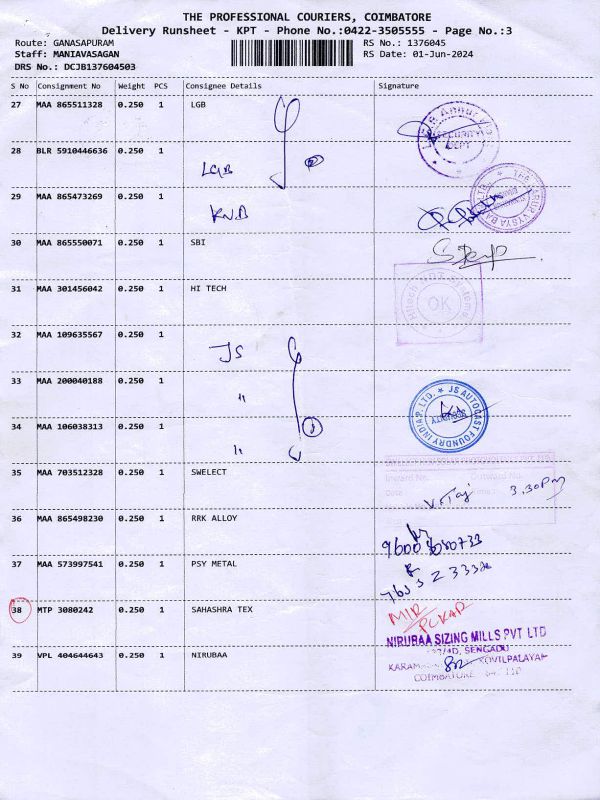 THE PROFESSIONAL COURIERS, COIMBATORE
Delivery Runsheet - KPT - Phone No.:0422-3505555 - Page No.:3
Route: GANASAPURAM RS No.: 1376045
Staff: MANIAVASAGAN RS Date: 01-Jun-2024
DRS No.: DCJB137604503
S No Consignment No Weight PCS Consignee Details Signature
27 MAA 865511328 0.250 1 LGB
SECURITY
DEPT
28 BLR 5910446636 0.250 1
LGB
29 MAA 865473269 0.250 1
KVB
30 MAA 865550071 0.250 1 SBI
31 MAA 301456042 0.250 1 HI TECH
OK
32 MAA 109635567 0.250 1
JS
33 MAA 200040188 0.250 1
"
JS AUTOCAST FOUNDRY INDIA P. LTD.
SECURITY
34 MAA 106038313 0.250 1
"
35 MAA 703512328 0.250 1 SWELECT
Inward No.
Date
3.30pm
36 MAA 865498230 0.250 1 RRK ALLOY
37 MAA 573997541 0.250 1 PSY METAL
38 MTP 3080242 0.250 1 SAHASHRA TEX
MIR
NIRUBAA SIZING MILLS PVT LTD
SENGADU
39 VPL 404644643 0.250 1 NIRUBAA
KOVILPALAYAM
COIMBATORE